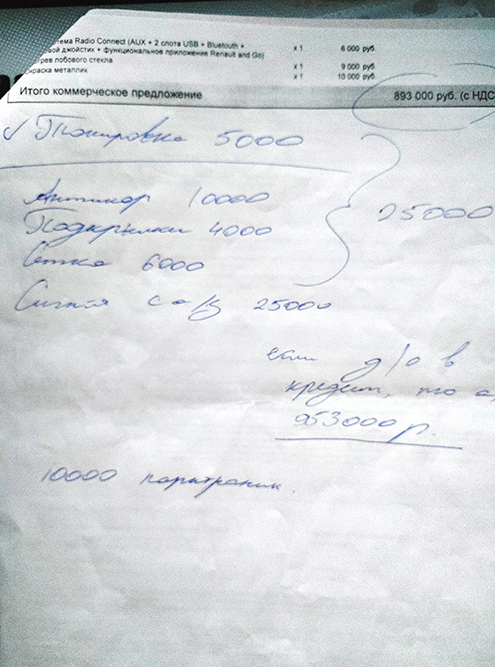 тема Radio Connect (AUX + 2 слота USB + Bluetooth +
вой джойстик + функциональное приложение Renault and Go) x 1 6 000 руб.
грев лобового стекла x 1 9 000 руб.
краска металлик x 1 10 000 руб.
Итого коммерческое предложение 893 000 руб. (с НДС
✓ Тонировка 5000
Антикор 10000
Подкрылки 4000
25000
Сетка 6000
Сигн-я с а/з 25000
если д/о в
кредит, то
953000 р.
10000 парктроник.